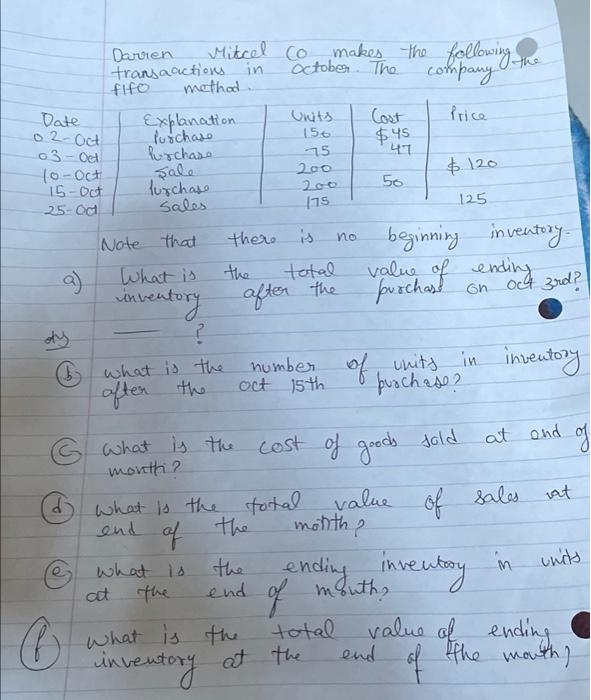 Darren Mitcel Co makes the following
transaactions in October. The company the
fifo method.
Date Explanation Units Cost Price
02-Oct Purchase 150 $45
03-Oct Purchase 75 47
10-Oct Sale 200 $120
15-Oct Purchase 200 50
25-Oct Sales 175 125
Note that there is no beginning inventory.
a) What is the total value of ending
inventory after the purchase on oct 3rd?
___ ?
(b) what is the number of units in inventory
after the oct 15th purchase?
(c) what is the cost of goods sold at end of
month?
(d) what is the total value of sales at
end of the month?
(e) what is the ending inventory in units
at the end of month?
(f) what is the total value of ending
inventory at the end of the month?